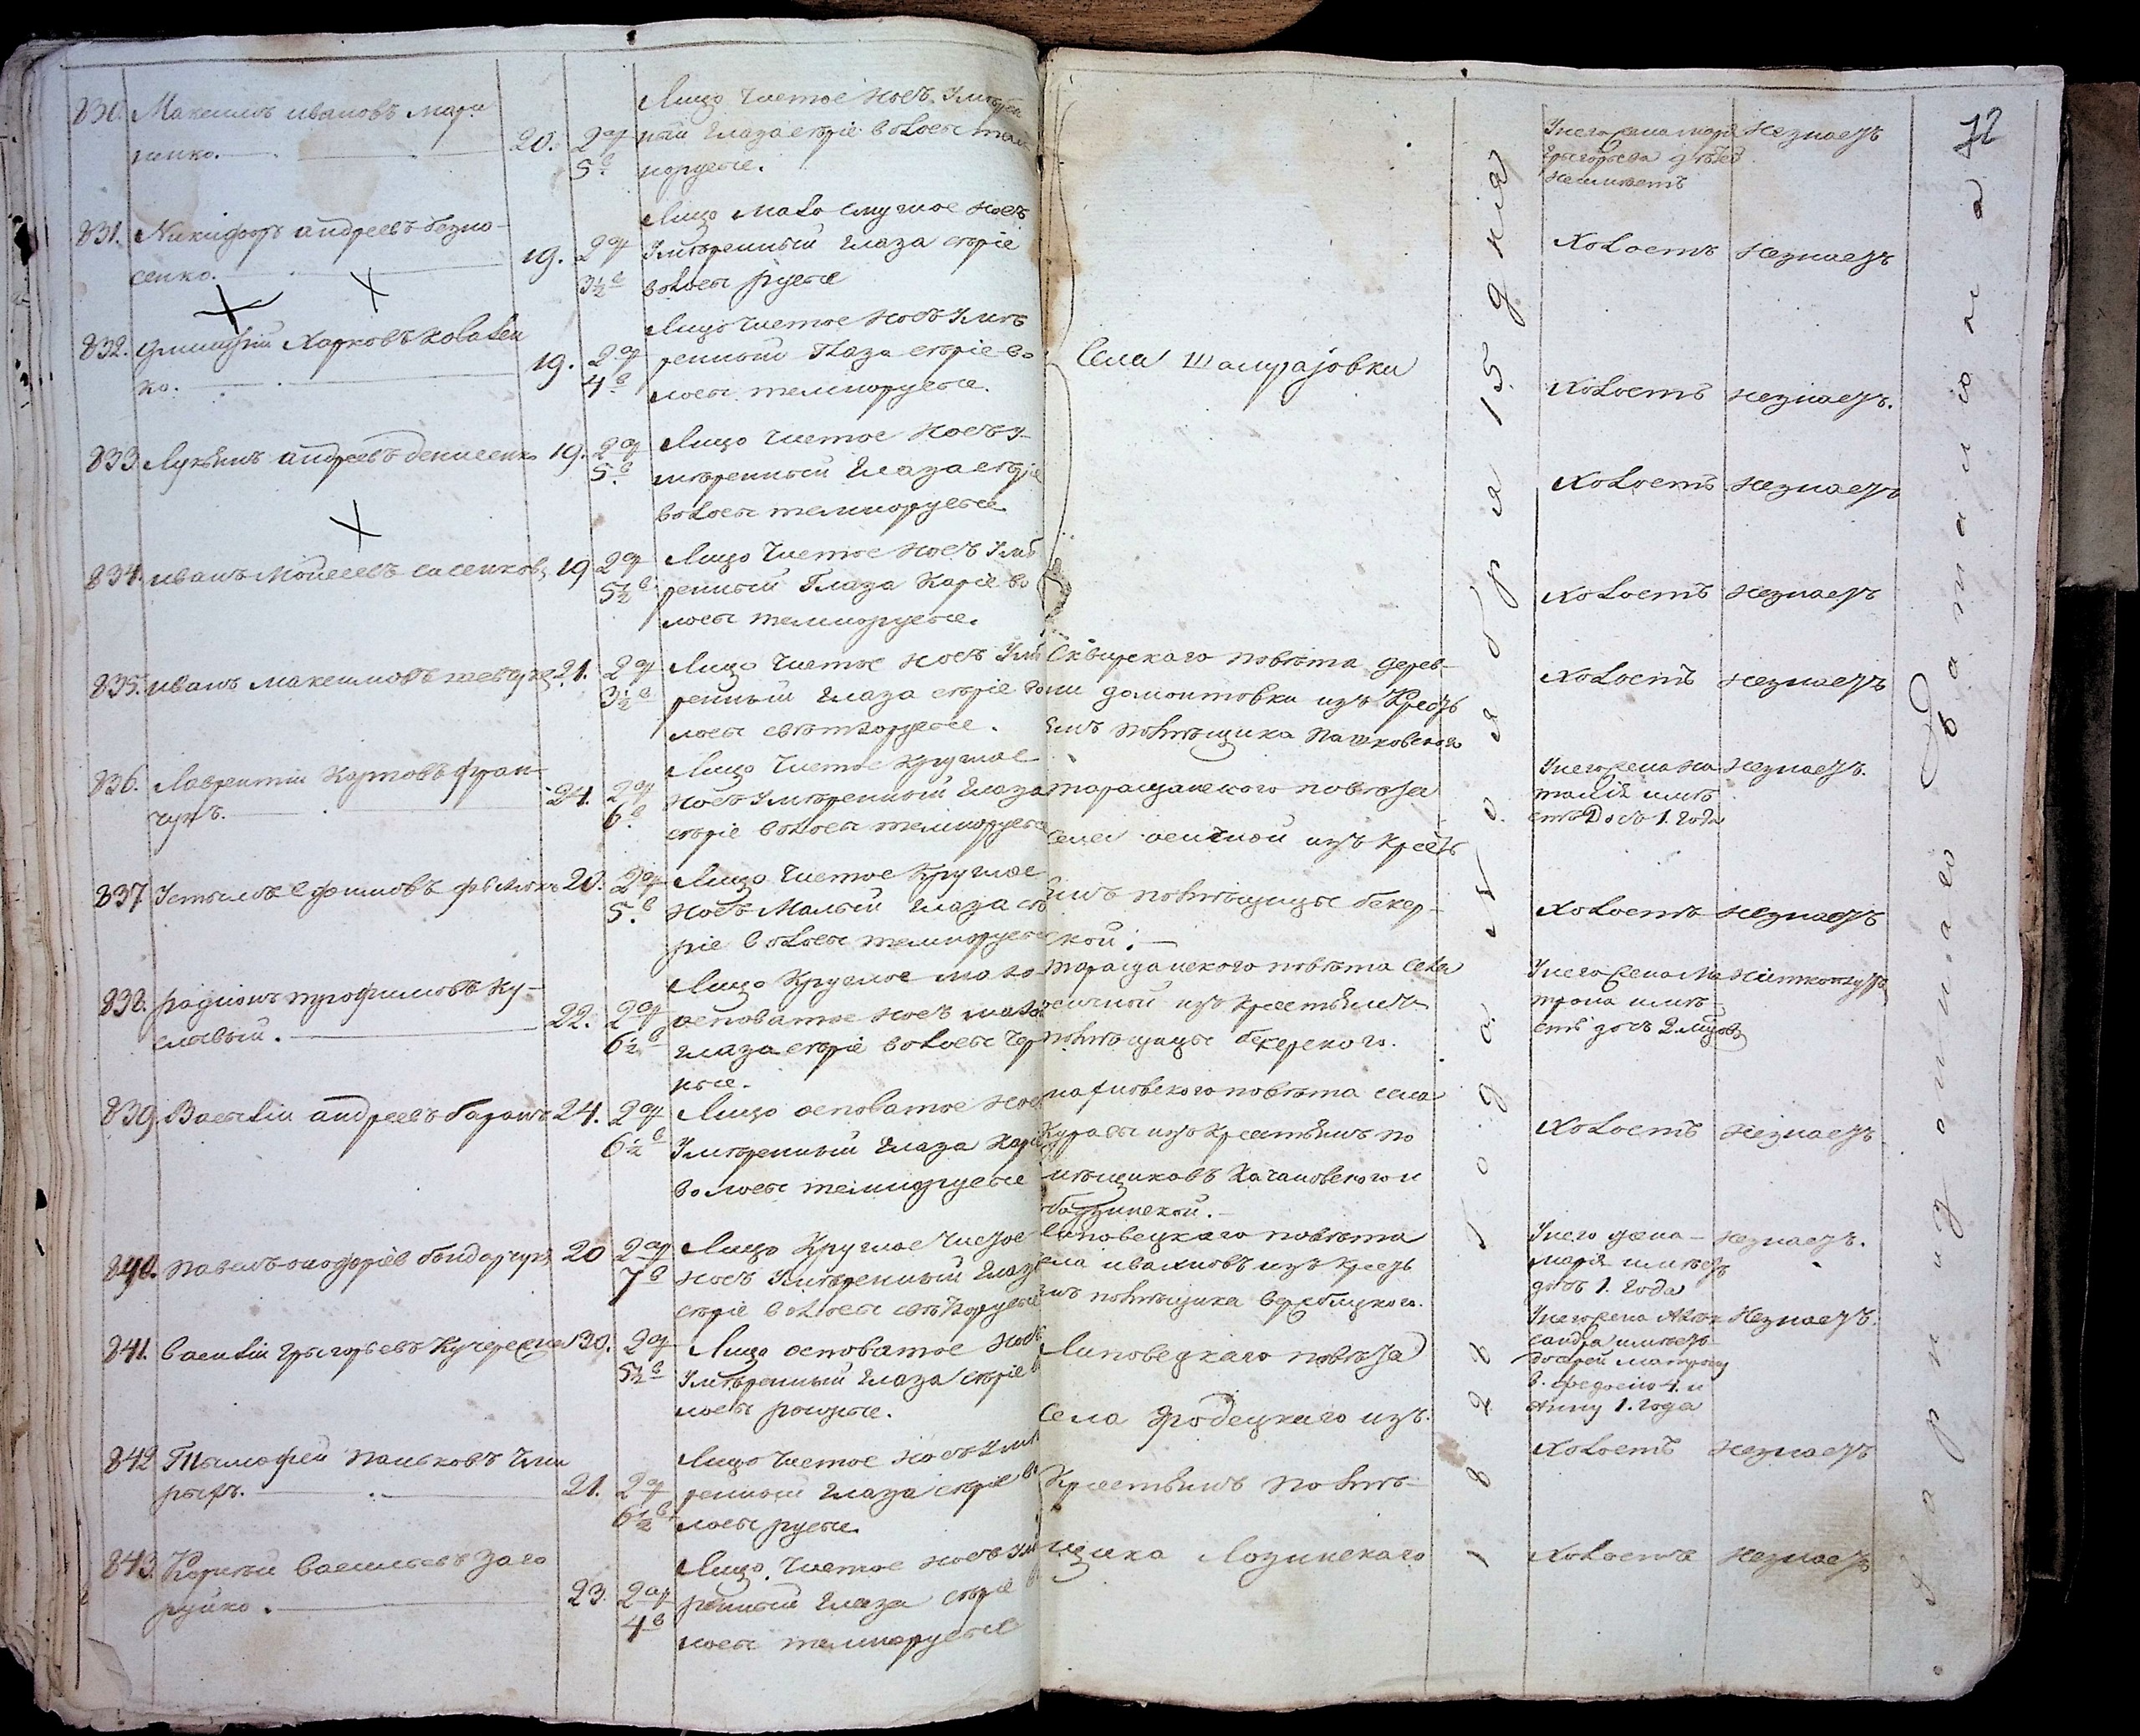 72
830. Максимъ ивановъ мари
ненко. 20. 2 ар 5 в
Лицо чистое носъ Умѣрен
ный глаза сѣріе волосы тем
норусые.
У него жена
григорьева детей
неимѣетъ
незнаетъ
831. Никифоръ андреевъ безно-
сенко. 19. 2 ар 3½ в
Лицо мало смуглое носъ
Умѣренный глаза сѣріе
волосы русые
Холостъ незнаетъ
832. Харковъ Ковален
ко. 19. 2 ар 4 в
Лицо чистое носъ Умѣ
ренный Глаза сѣріе во
лосы темнорусые.
Села
Холостъ незнаетъ.
833 Лукьянъ андреевъ денисенко 19. 2 ар 5. в
Лицо чистое носъ У-
мѣренный Глаза сѣріе
волосы темнорусые
Холостъ незнаетъ
834. иванъ Мойсеевъ 19 2 ар 5½ в
Лицо чистое носъ Умѣ
ренный Глаза Каріе во
лосы темнорусые.
Холостъ незнаетъ
835. иванъ максимовъ шевчукъ 21. 2 ар 3½ в
Лицо чистое носъ Умѣ
ренный глаза сѣріе во
лосы свѣтлорусые.
Сквирскаго повѣта дерев-
ни домонтовки изъ Крестъ
янъ помѣщика Пашковскаго
Холостъ незнаетъ
836. Лаврентій Карповъ фран-
чукъ. 24. 2 ар 6 в
Лицо чистое круглое
носъ Умѣренный глаза
сѣріе волосы темнорусые
таращанского повета
Села осичной изъ Крестъ
У него жена На
талія имѣ
етъ дочь 1. года
незнаетъ.
837 Устимъ Ефимовъ 20. 2 ар 5. в
Лицо чистое Круглое
носъ Малый глаза сѣ
ріе волосы темнорусые
янъ помѣщицы бекер-
ской.
Холостъ незнаетъ
838. радіонъ трофимовъ Ку-
22. 2 ар 6½ в
Лицо Круглое мало
осповатое носъ малъ
глаза сѣріе волосы чер
ные.
таращанского повѣта Села
осичной изъ Крестьянъ
помѣщицы бекерского.
У него жена Ма
трона имѣ-
етъ дочь 2 мцов
839. Василій андреевъ баранъ 24. 2 ар 6½ в
Лицо осповатое носъ
Умѣренный глаза Каріе
волосы темнорусые
махновского повѣта села
Журавы изъ Крестьянъ по
мѣщиковъ Качановского и
Холостъ незнаетъ
840. Павелъ онофріев бондарчукъ 20 2 ар 7 в
Лицо Круглое чистое
носъ Умѣренный глаза
сѣріе волосы свѣтлорусые
Липовецкаго повѣта
села ивахновъ изъ Крестъ
янъ помѣщика вербицкого.
У него жена
марія имѣетъ
дочь 1. года
незнаетъ.
841. Василій Григорьевъ 30. 2 ар 5½ в
Лицо осповатое носъ
Умѣренный глаза сѣріе во
лосы русые.
Липовецкаго повета
Села Городецкаго изъ
У него жена Алек
сандра имѣетъ
дочерей матрону
8. федосію 4. и
Анну 1. года
незнаетъ.
842 Тимофей Паньковъ
21. 2 ар 6½ в
Лицо чистое носъ Умѣ
ренный глаза сѣріе во
лосы русые.
Крестьянъ помѣ-
Холостъ незнаетъ
843. Корній Васильевъ Заго
руйко. 23. 2 ар 4 в
Лицо чистое носъ Умѣ
ренный глаза сѣріе во
лосы темнорусые
щика Лозинскаго
Холостъ незнаетъ
1828 года. Ноября 15 дня